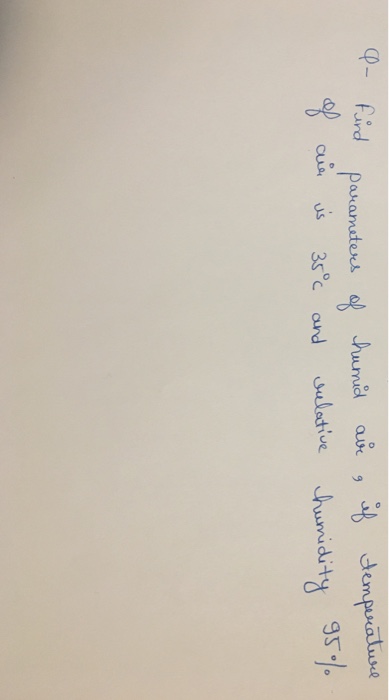 Q- Find parameters of humid air, if temperature
of air is 35°C and relative humidity 95%.